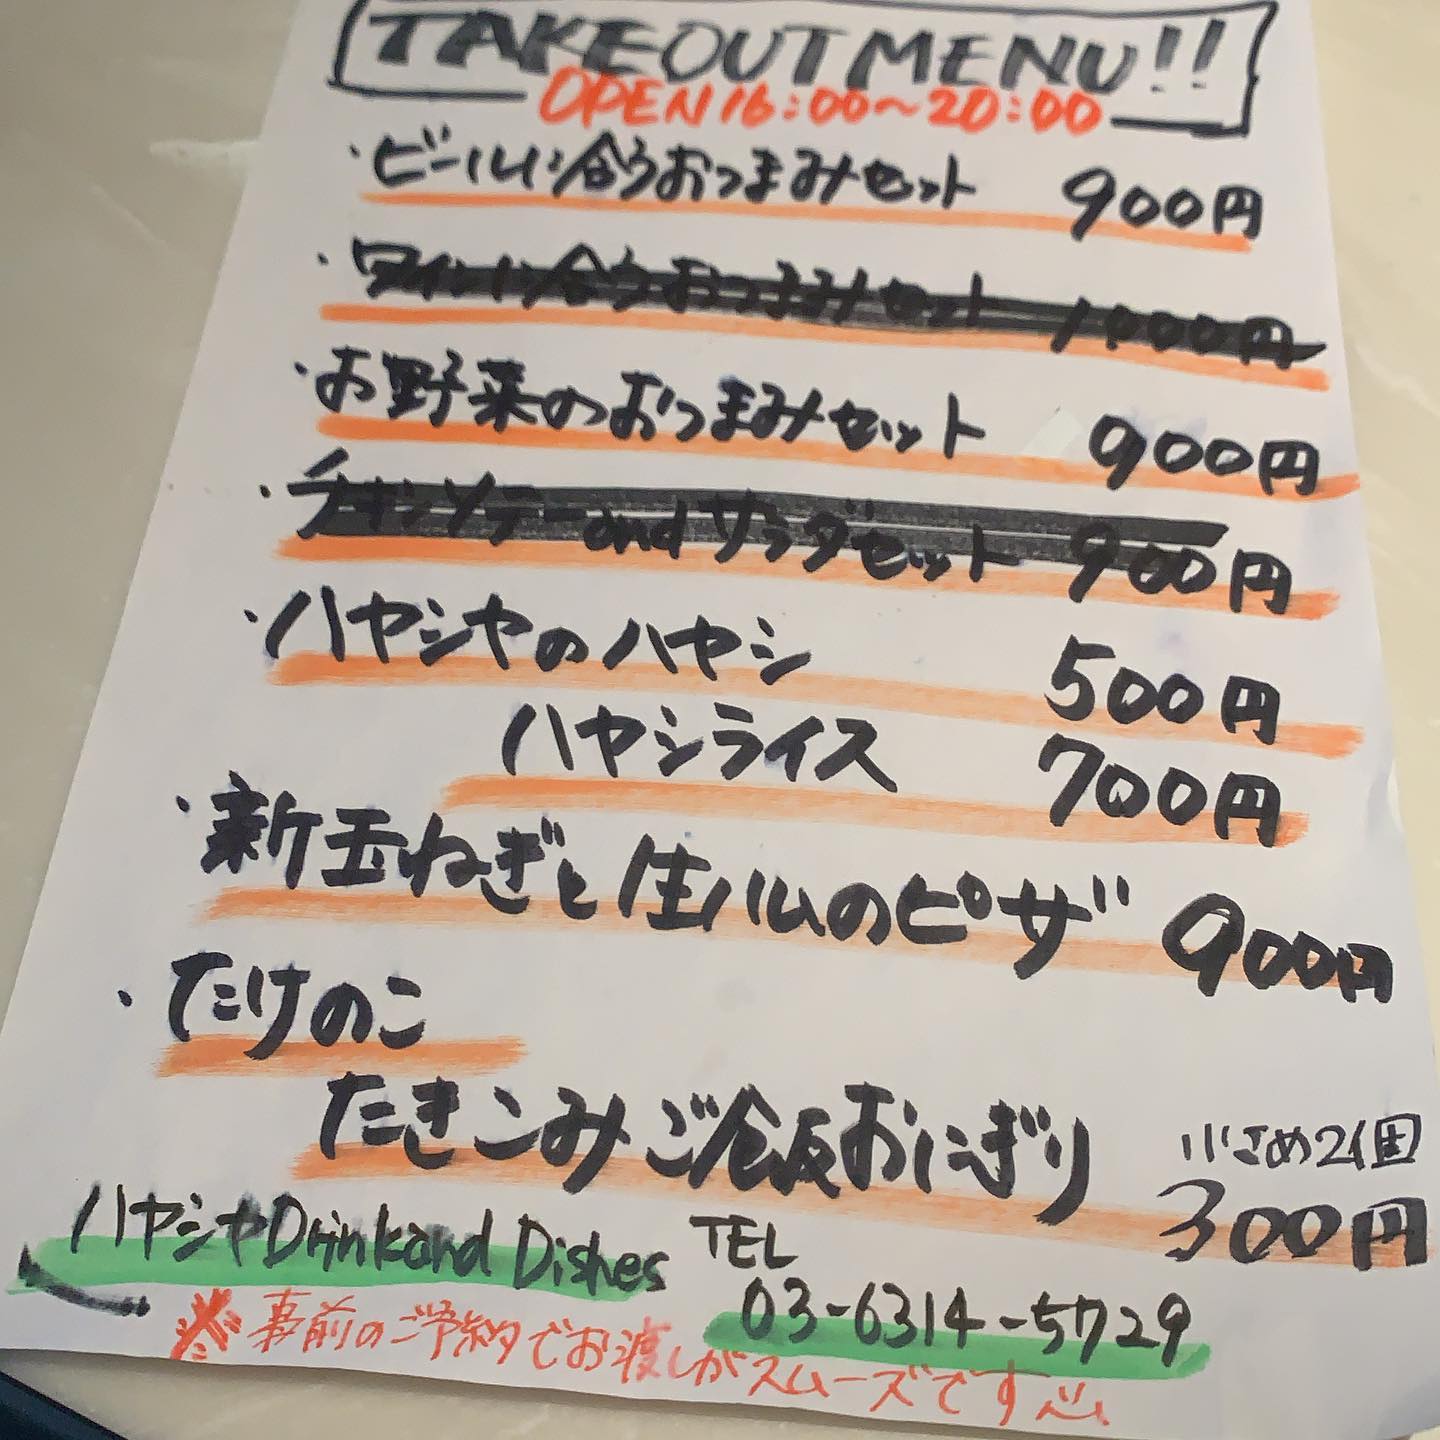 TAKEOUT MENU!!
OPEN 16:00〜20:00
・ビールに合うおつまみセット 900円
・ワインに合うおつまみセット 1000円
・お野菜のおつまみセット 900円
・チキンソテーandサラダセット 900円
・ハヤシヤのハヤシ 500円
ハヤシライス 700円
・新玉ねぎと生ハムのピザ 900円
・たけのこ
たきこみご飯おにぎり 小さめ2個 300円
ハヤシヤDrinkand Dishes TEL
03-6314-5729
※事前のご予約でお渡しがスムーズです